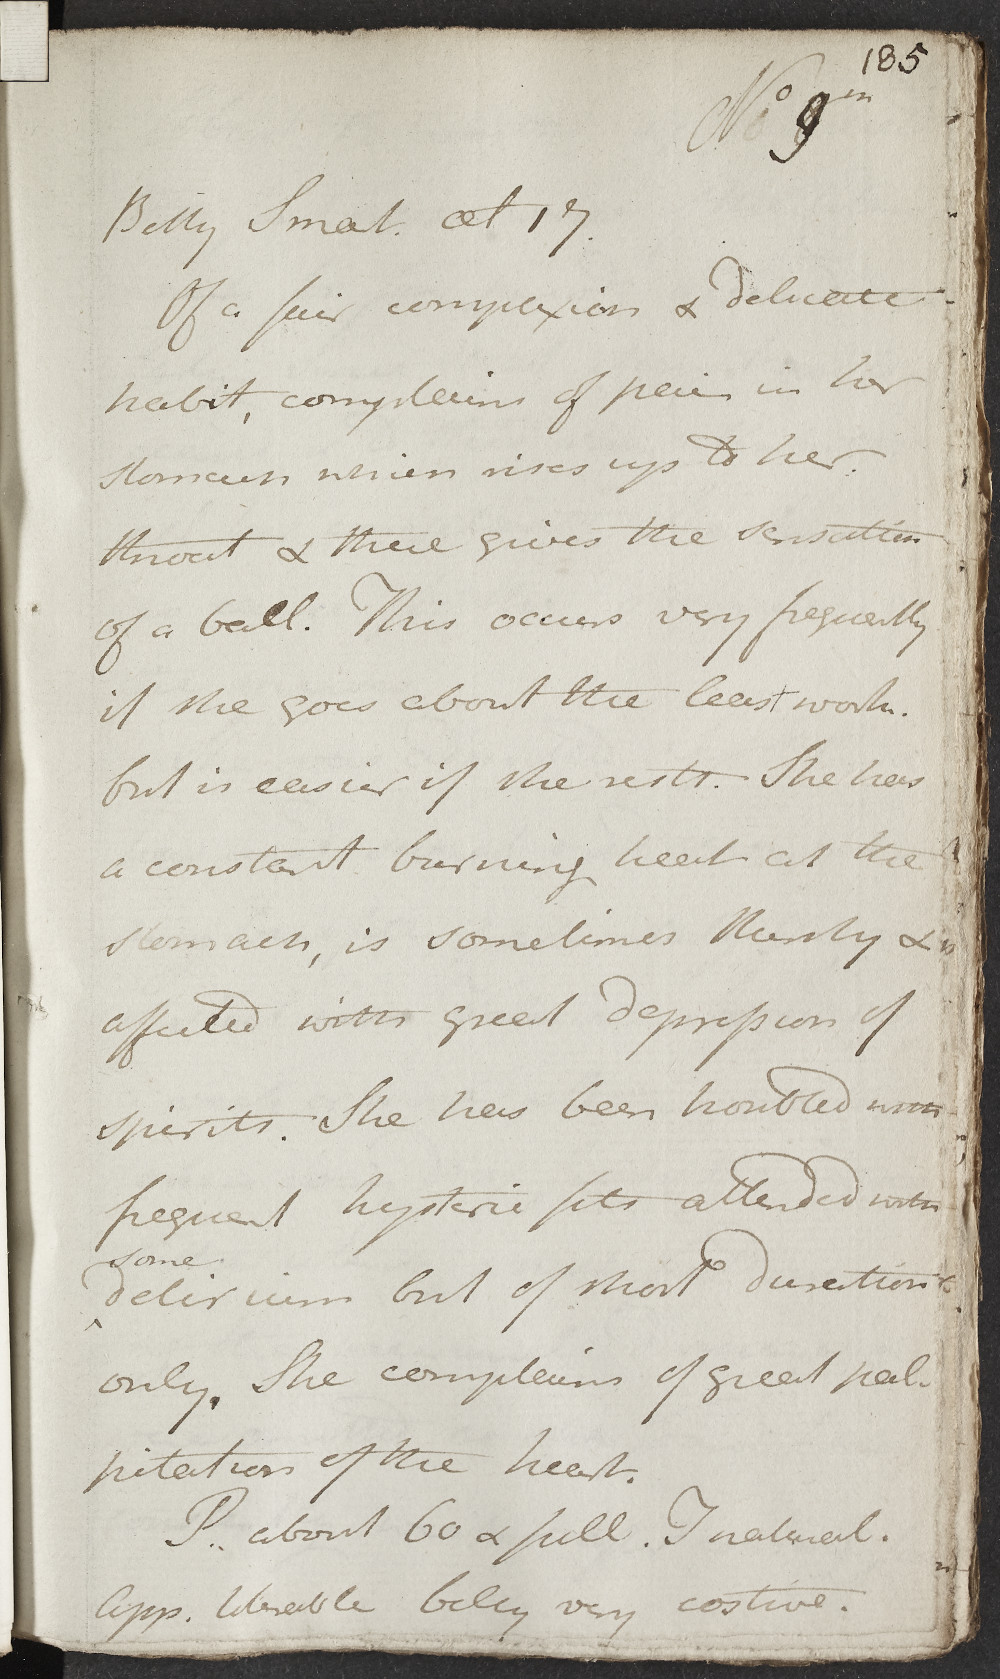 185
No 9
Betty Smat. æt 17.
Of a fair complexion & delicate
habit, complains of pain in her
stomach which rises up to her
throat & there gives the sensation
of a ball. This occurs very frequently
if she goes about the least work.
but is easier if she rests. She has
a constant burning heat at the
stomach, is sometimes thirsty & is
affected with great depression of
spirits. She has been troubled with
frequent hysteric fits attended with
some
delirium but of short duration
only. She complains of great pal-
pitation of the heart.
P. about 60 & full. T natural.
App. tolerable belly very costive.